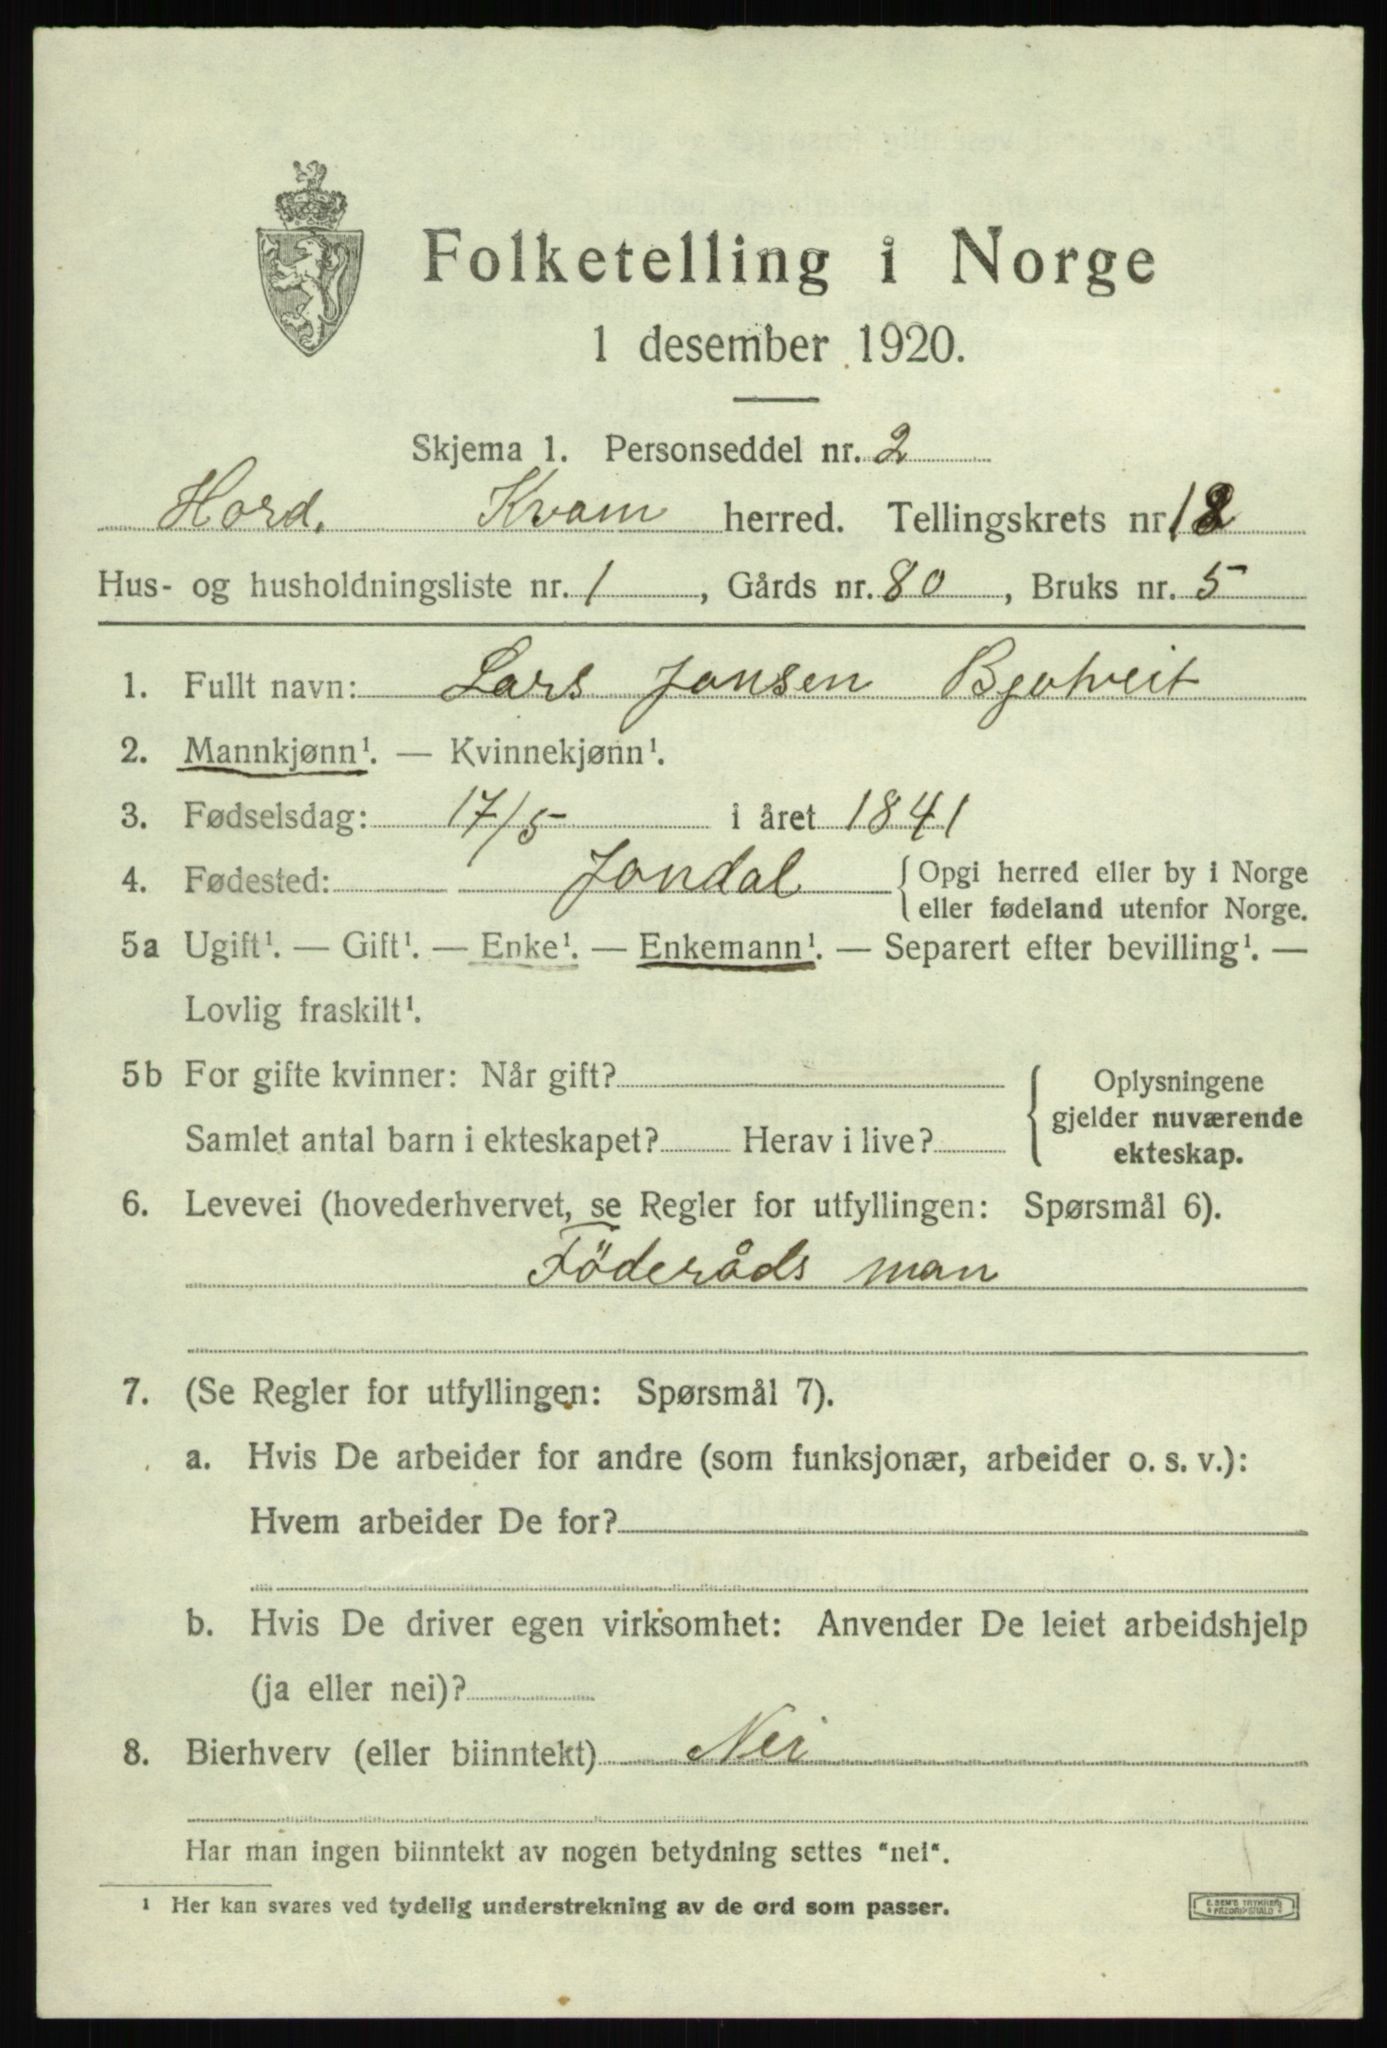 Folketelling i Norge
1 desember 1920.
Skjema 1. Personseddel nr. 2
Hord. Kvam herred. Tellingskrets nr 12
Hus- og husholdningsliste nr. 1, Gårds nr. 80, Bruks nr. 5
1. Fullt navn: Lars Jonsen Bjotveit
2. Mannkjønn¹. — Kvinnekjønn¹.
3. Fødselsdag: 17/5 i året 1841
4. Fødested: Jondal { Opgi herred eller by i Norge
eller fødeland utenfor Norge.
5a Ugift¹. — Gift¹. — Enke¹. — Enkemann¹. — Separert efter bevilling¹. —
Lovlig fraskilt¹.
5b For gifte kvinner: Når gift? { Oplysningene
gjelder nuværende
Samlet antal barn i ekteskapet? Herav i live?
ekteskap.
6. Levevei (hovederhvervet, se Regler for utfyllingen: Spørsmål 6).
Föderåds man
7. (Se Regler for utfyllingen: Spørsmål 7).
a. Hvis De arbeider for andre (som funksjonær, arbeider o. s. v.):
Hvem arbeider De for?
b. Hvis De driver egen virksomhet: Anvender De leiet arbeidshjelp
(ja eller nei)?
8. Bierhverv (eller biinntekt) Nei
Har man ingen biinntekt av nogen betydning settes "nei".
¹ Her kan svares ved tydelig understrekning av de ord som passer.